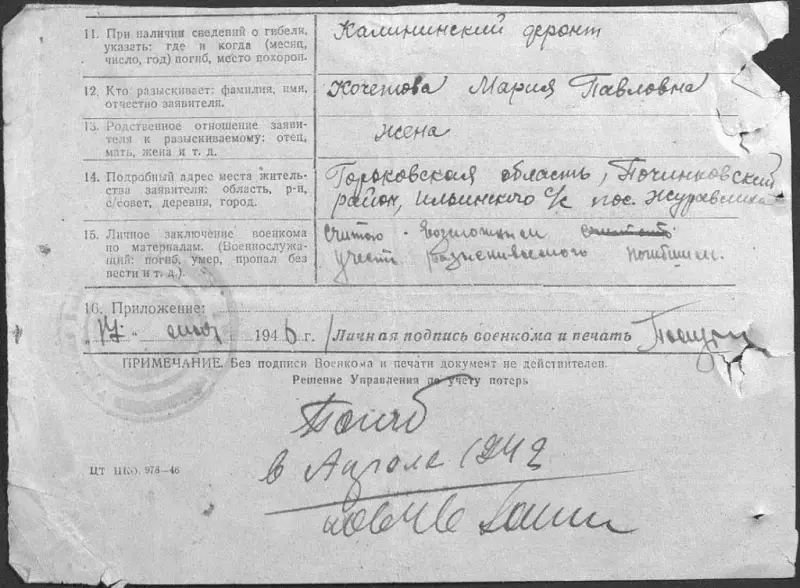 11. При наличии сведений о гибели, Калининский фронт
указать: где и когда (месяц,
число, год) погиб, место похорон.
12. Кто разыскивает: фамилия, имя, Кочетова Мария Павловна
отчество заявителя.
13. Родственное отношение заяви-
теля к разыскиваемому: отец, жена
мать, жена и т. д.
14. Подробный адрес места житель- Горьковская область, Починковский
ства заявителя: область, р-н, район, Ильинского с/с пос. Журавлиха
с/совет, деревня, город.
15. Личное заключение военкома Считаю возможным
по материалам. (Военнослужа- учесть разыскиваемого погибшим.
щий: погиб, умер, пропал без
вести и т. д.).
16. Приложение:
"17" мая 1946 г. Личная подпись военкома и печать
ПРИМЕЧАНИЕ. Без подписи Военкома и печати документ не действителен.
Решение Управления по учету потерь
Погиб
в Апреле 1942
ЦТ НКО. 978—46